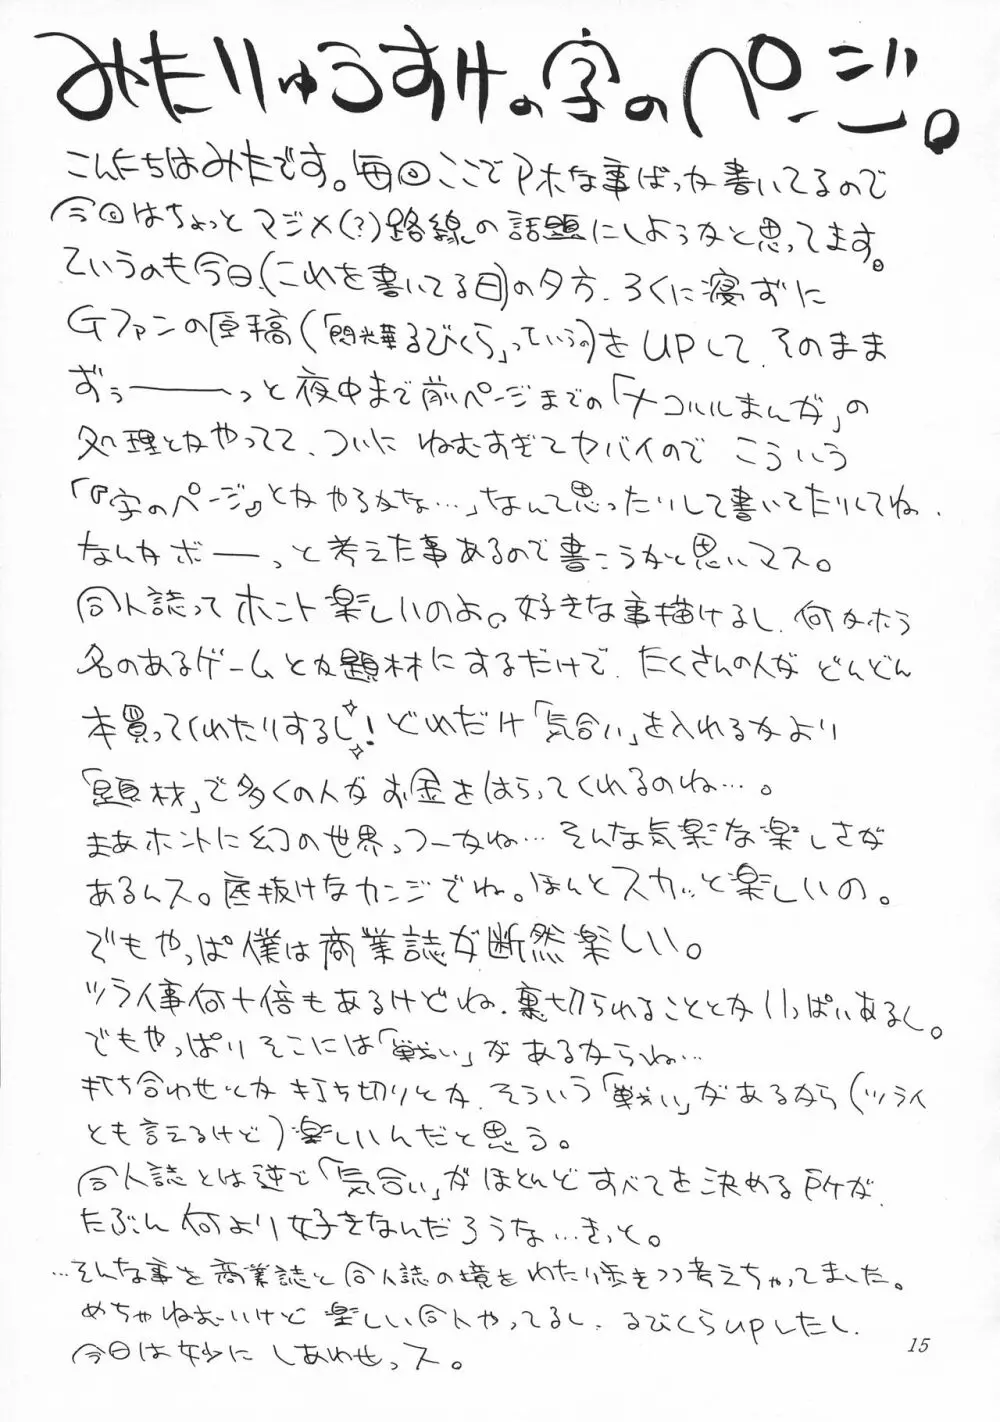 みたりゅうすけの字のページ。
こんにちはみたです。毎回ここでアホな事ばっか書いてるので
今回はちょっとマジメ(?)路線の話題にしようかと思ってます。
ていうのも今日(これを書いてる日)の夕方、ろくに寝ずに
Gファンの原稿(「閃光華るびくら」っていうの)をUPして、そのまま
ずぅーーーっと夜中まで前ページまでの「ナコルルまんが」の
処理とかやってて、ついにねむすぎてヤバイのでこういう
「『字のページ』とかやるかな…」なんて思ったりして書いてたりしてね、
なんかボーーっと考えた事あるので書こうかと思いマス。
同人誌ってホント楽しいのよ。好きな事描けるし、何かホラ
名のあるゲームとか題材にするだけで、たくさんの人がどんどん
本買ってくれたりするし!どれだけ「気合い」を入れるかより
「題材」で多くの人がお金をはらってくれるのね…。
まあホントに幻の世界っつーかね…そんな気楽な楽しさが
あるんス。底抜けなカンジでね。ほんとスカッと楽しいの。
でもやっぱ僕は商業誌が断然楽しい。
ツライ事何十倍もあるけどね、裏切られることとかいっぱいあるし。
でもやっぱりそこには「戦い」があるからね…
打ち合わせとか打ち切りとか、そういう「戦い」があるから(ツライ
とも言えるけど)楽しいんだと思う。
同人誌とは逆で「気合い」がほとんどすべてを決める所が、
たぶん何より好きなんだろうな…きっと。
…そんな事を商業誌と同人誌の境をわたり歩きつつ考えちゃってました。
めちゃねむいけど楽しい同人やってるし、るびくらUPしたし、
今日は妙にしあわせっス。
15